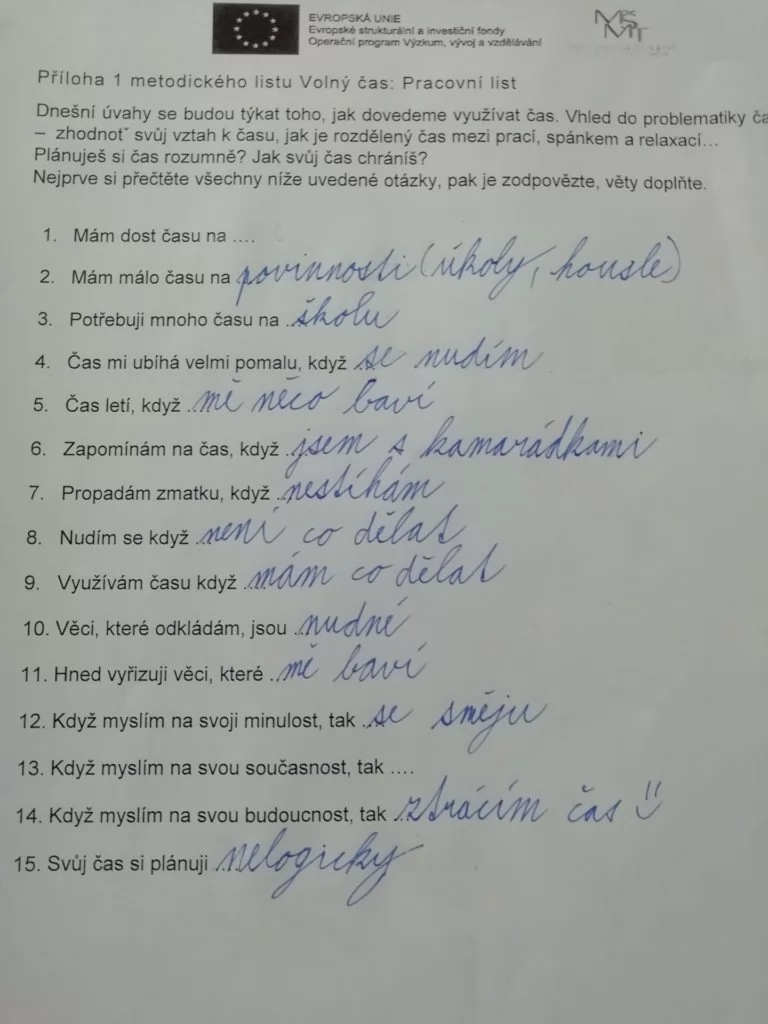 EVROPSKÁ UNIE
Evropské strukturální a investiční fondy
Operační program Výzkum, vývoj a vzdělávání
MŠMT
Příloha 1 metodického listu Volný čas: Pracovní list
Dnešní úvahy se budou týkat toho, jak dovedeme využívat čas. Vhled do problematiky ča
– zhodnoť svůj vztah k času, jak je rozdělený čas mezi prací, spánkem a relaxací…
Plánuješ si čas rozumně? Jak svůj čas chráníš?
Nejprve si přečtěte všechny níže uvedené otázky, pak je zodpovězte, věty doplňte.
1. Mám dost času na ….
2. Mám málo času na povinnosti (úkoly, housle)
3. Potřebuji mnoho času na ..školu
4. Čas mi ubíhá velmi pomalu, když se nudím
5. Čas letí, když ..mě něco baví
6. Zapomínám na čas, když ..jsem s kamarádkami
7. Propadám zmatku, když ..nestíhám
8. Nudím se když ..není co dělat
9. Využívám času když ..mám co dělat
10. Věci, které odkládám, jsou ..nudné
11. Hned vyřizuji věci, které ..mě baví
12. Když myslím na svoji minulost, tak ..se směju
13. Když myslím na svou současnost, tak ….
14. Když myslím na svou budoucnost, tak ..ztrácím čas
15. Svůj čas si plánuji ..nelogicky